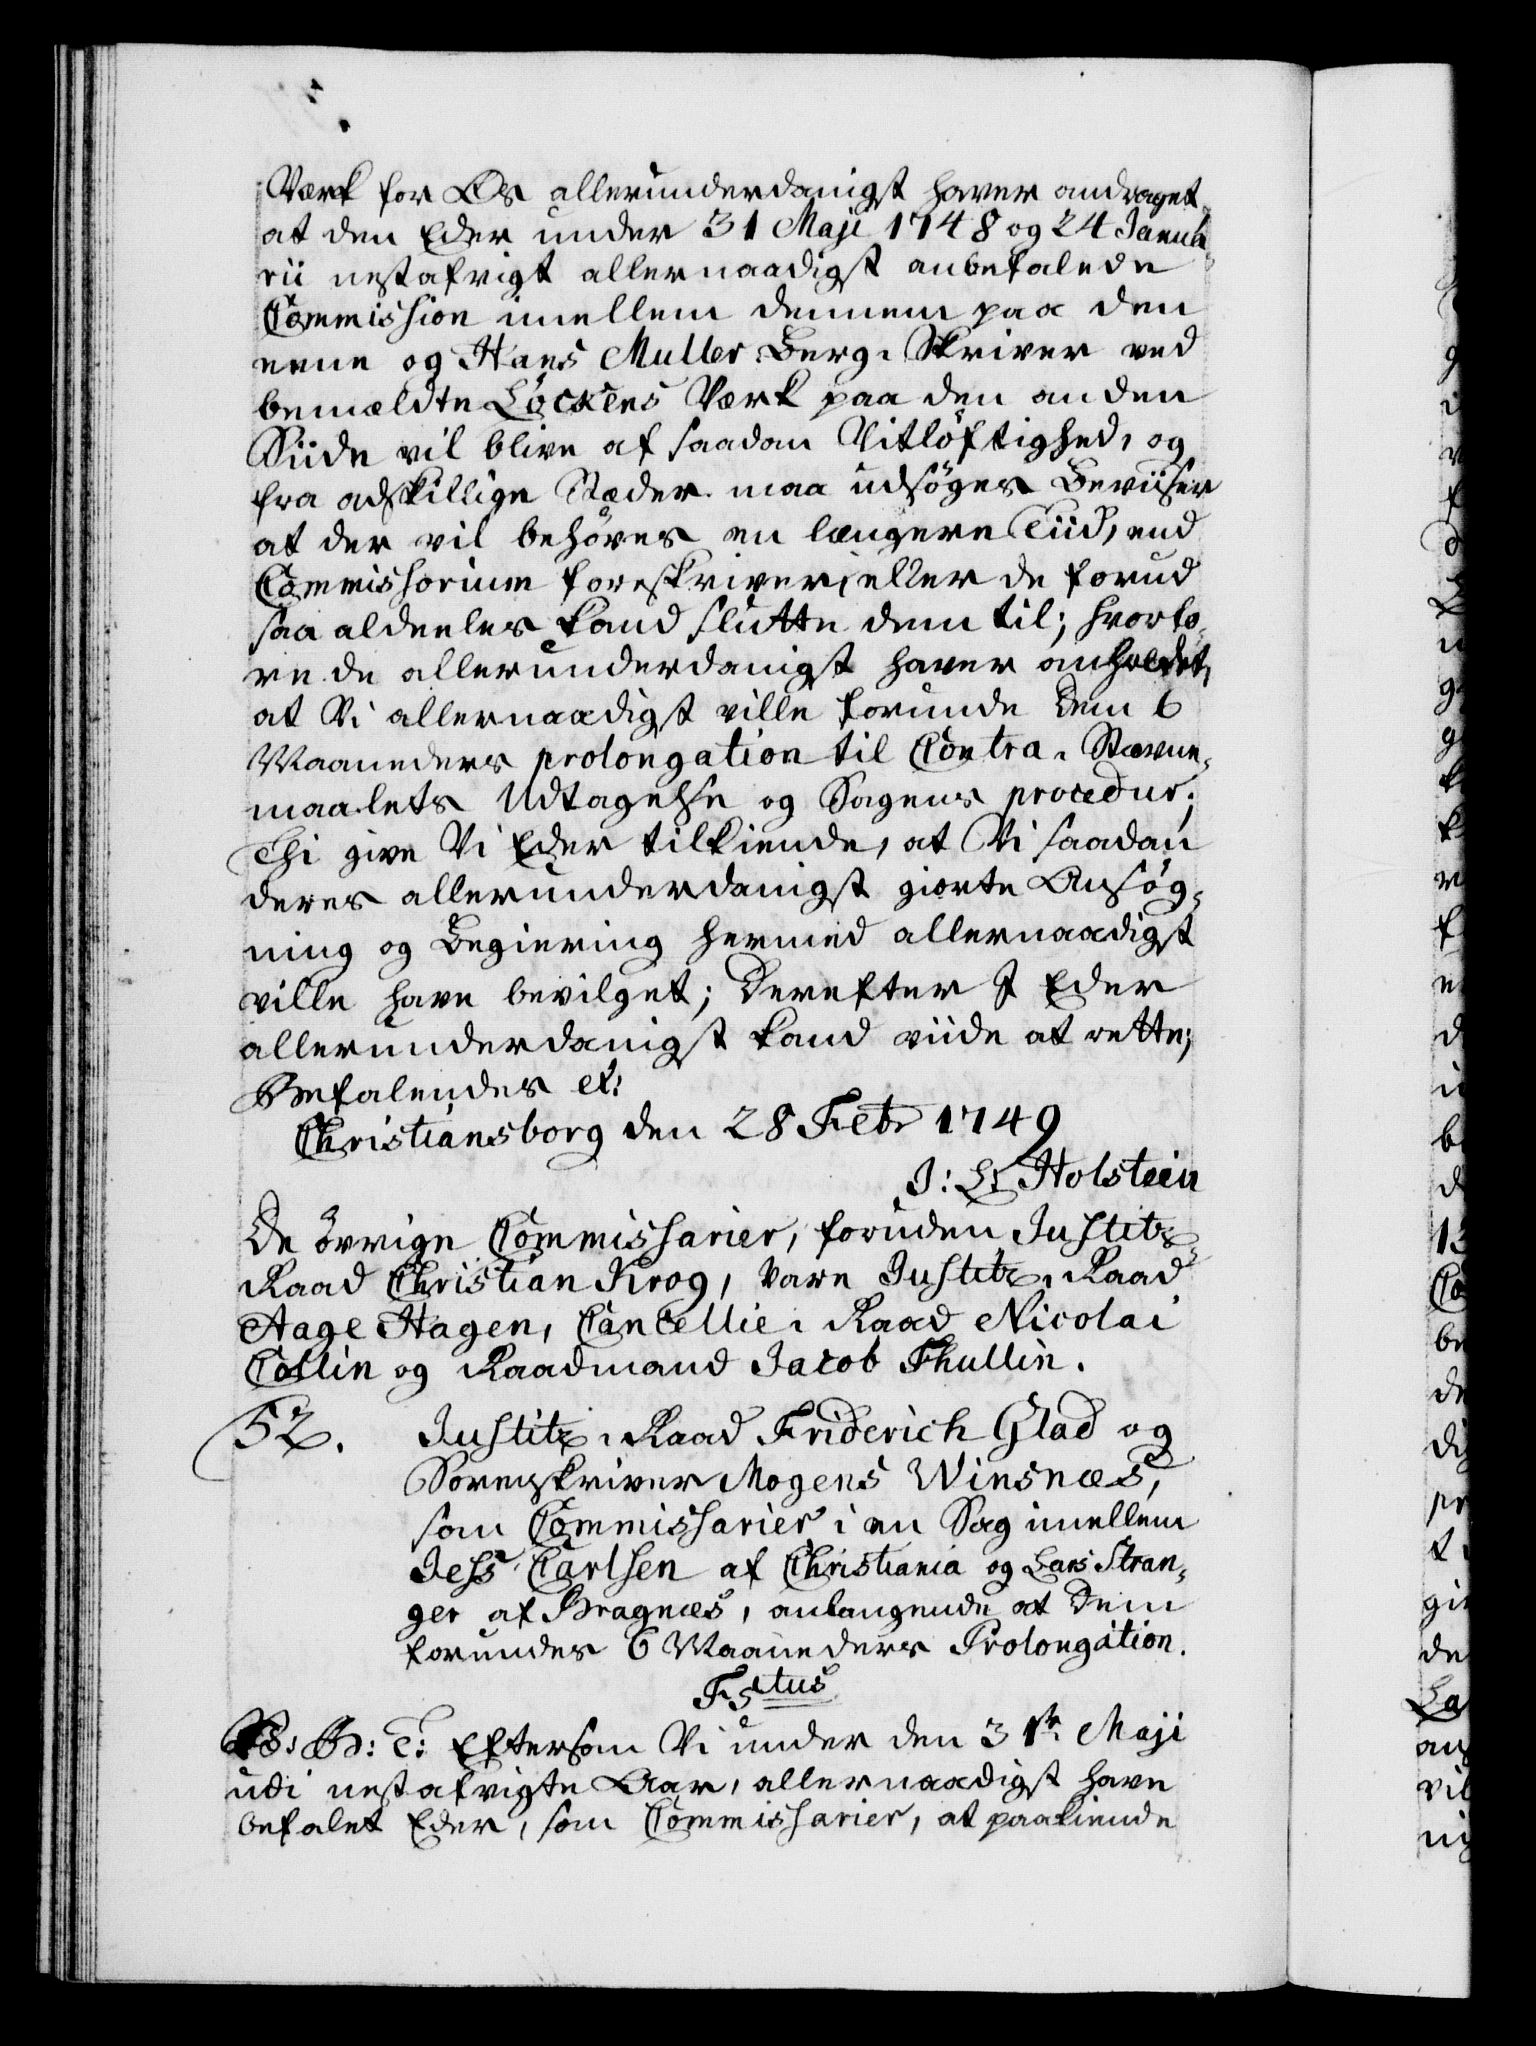 Værk for Os allerunderdanigst haver andraget
at den Eder under 31 Maji 1748 og 24 Janua
rii nestafvigt allernaadigst anbefalede
Commission imellem dennem paa den
eene og Hans Muller Berg-Skriver ved
bemældte Löckens Værk paa den anden
Siide vil blive af saadan Vitlöftighed, og
fra adskillige Stæder maa udsöges Beviiser
at der vil behöves en længere Tiid, end
Commissorium foreskriver, eller de forud
saa aldeeles kand slutte dem til; hvorfo-
re de allerunderdanigst haver anholdet,
at Vi allernaadigst ville forunde Dem 6
Maaneders prolongation til Contra-Stævne-
maalets Udtagelse og Sagens procedur;
Thi give Vi Eder tilkiende, at Vi saadan
deres allerunderdanigst giorte Ansög-
ning og Begiering hermed allernaadigst
ville have bevilget; Derefter I Eder
allerunderdanigst kand viide at rette;
Befalendes etc:
Christiansborg den 28 Febr 1749
J: L: Holstein
De övrige Commissarier, foruden Justitz-
Raad Christian Krog, vare Justitz-Raad
Aage Hagen, Cancellie-Raad Nicolai
Collin og Raadmand Jacob Thullin.
52. Justitz-Raad Friderich Glad og
Sorenskriver Mogens Winsnæs,
som Commissarier i en Sag imellem
Jess Carlsen af Christiania og Lars Stran-
ger af Bragnæs, anlangende at Dem
forundes 6 Maaneders Prolongation.
F5tus
V: G: T: Eftersom Vi under den 31te Maji
udi nestafvigte Aar, allernaadigst have
befalet Eder, som Commissarier, at paakiende